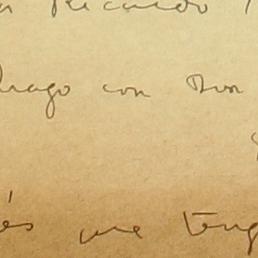 Ricardo
con Don
és me teng